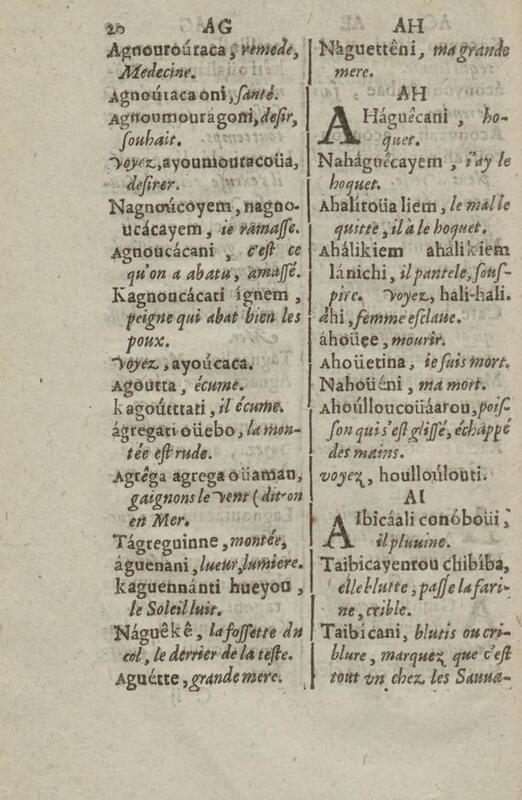 20 AG
Agnouroútaca, remede,
Medecine.
Agnoútacaoni, santé.
Agnoumouragoni, desir,
souhait.
Voyez, ayoumouracoüa,
desirer.
Nagnoúcoyem, nagno-
ucácayem, ie ramasse.
Agnoucácani, c'est ce
qu'on a abatu, amassé.
Kagnoucácati ígnem,
peigne qui abat bien les
poux.
Voyez, ayoúcaca.
Agoutta, écume.
kagoútttati, il écume.
ágregati oüebo, la mon-
tée est rude.
Agrêga agrega oüaman,
gaignons le vent (dit-on
en Mer.
Tágreguinne, montée,
águenani, lueur, lumiere.
kaguennánti hueyou,
le Soleil luit.
Náguêkê, la fossette du
col, le derrier de la teste.
Aguétte, grande mere.
AH
Nàguettêni, ma grande
mere.
AH
AHáguêcani, ho-
quet.
Naháguêcayem, i'ay le
hoquet.
Ahalíroüa liem, le mal le
quitte, il a le hoquet.
Ahálikiem ahálikiem
lánichi, il pantele, sous-
pire. Voyez, hali-hali.
ahi, femme esclaue.
áhoüee, mourir.
Ahoüetina, ie suis mort.
Nahoüéni, ma mort.
Ahoúlloucoüáarou, pois-
son qui s'est glissé, échappé
des mains.
voyez, houlloúlouti.
AI
AIbicáali conóboüi,
il pluuine.
Taibicayenrou chibíba,
elle blutte, passe la fari-
ne, crible.
Taibicani, blutis ou cri-
blure, marquez que c'est
tout vn chez les Sauua-